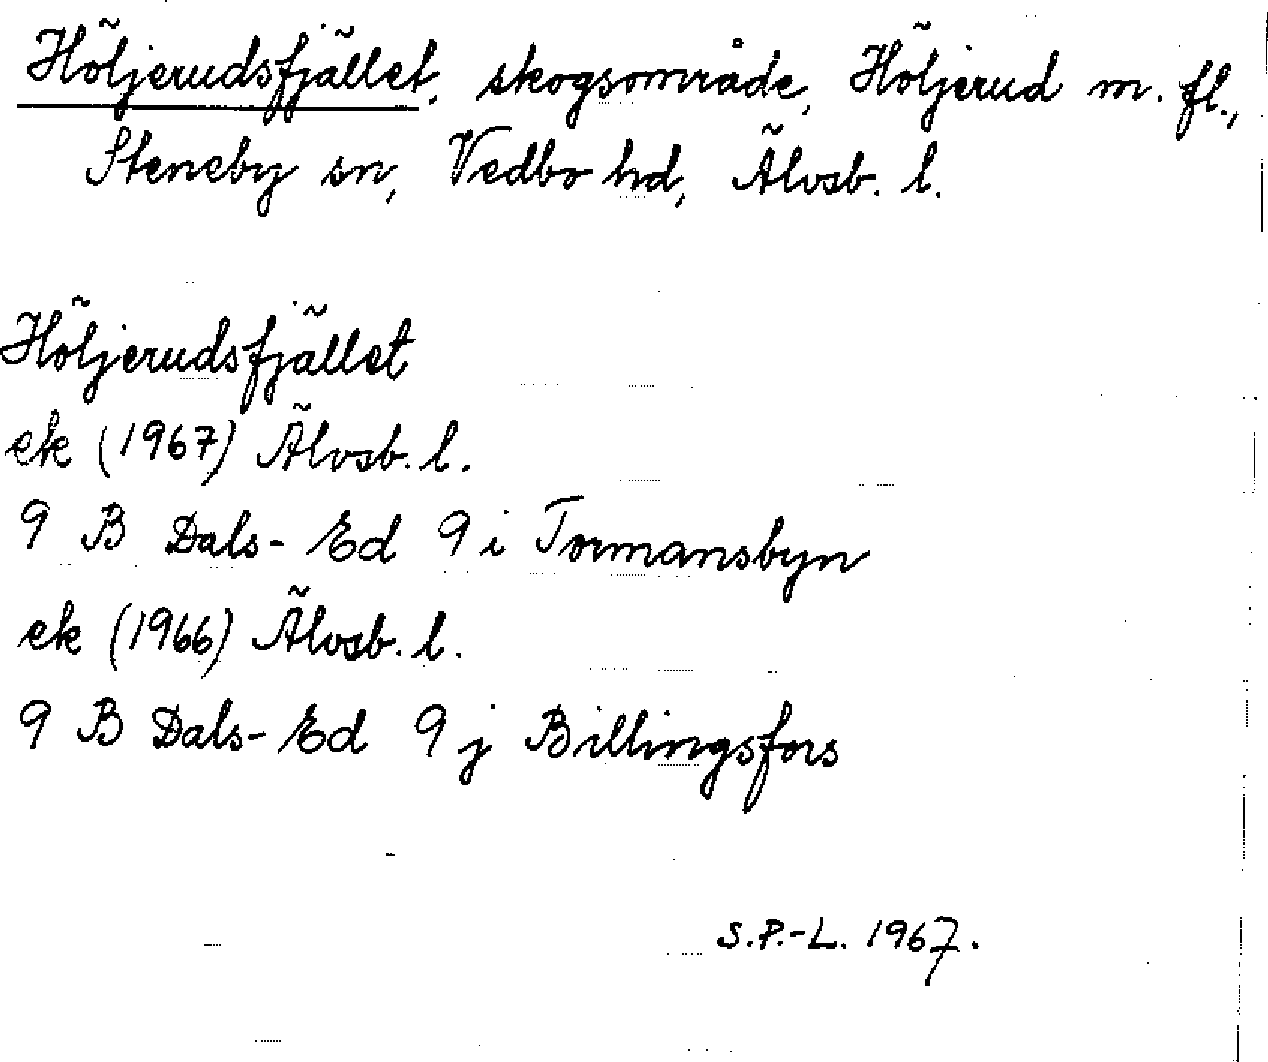 Höljerudsfjället, skogsområde, Höljerud m. fl.,
Steneby sn, Vedbo hd, Älvsb. l.
Höljerudsfjället
ek (1967) Älvsb. l.
9 B Dals-Ed 9 i Tormansbyn
ek (1966) Älvsb. l.
9 B Dals-Ed 9 j Billingsfors
S.P.-L. 1967.